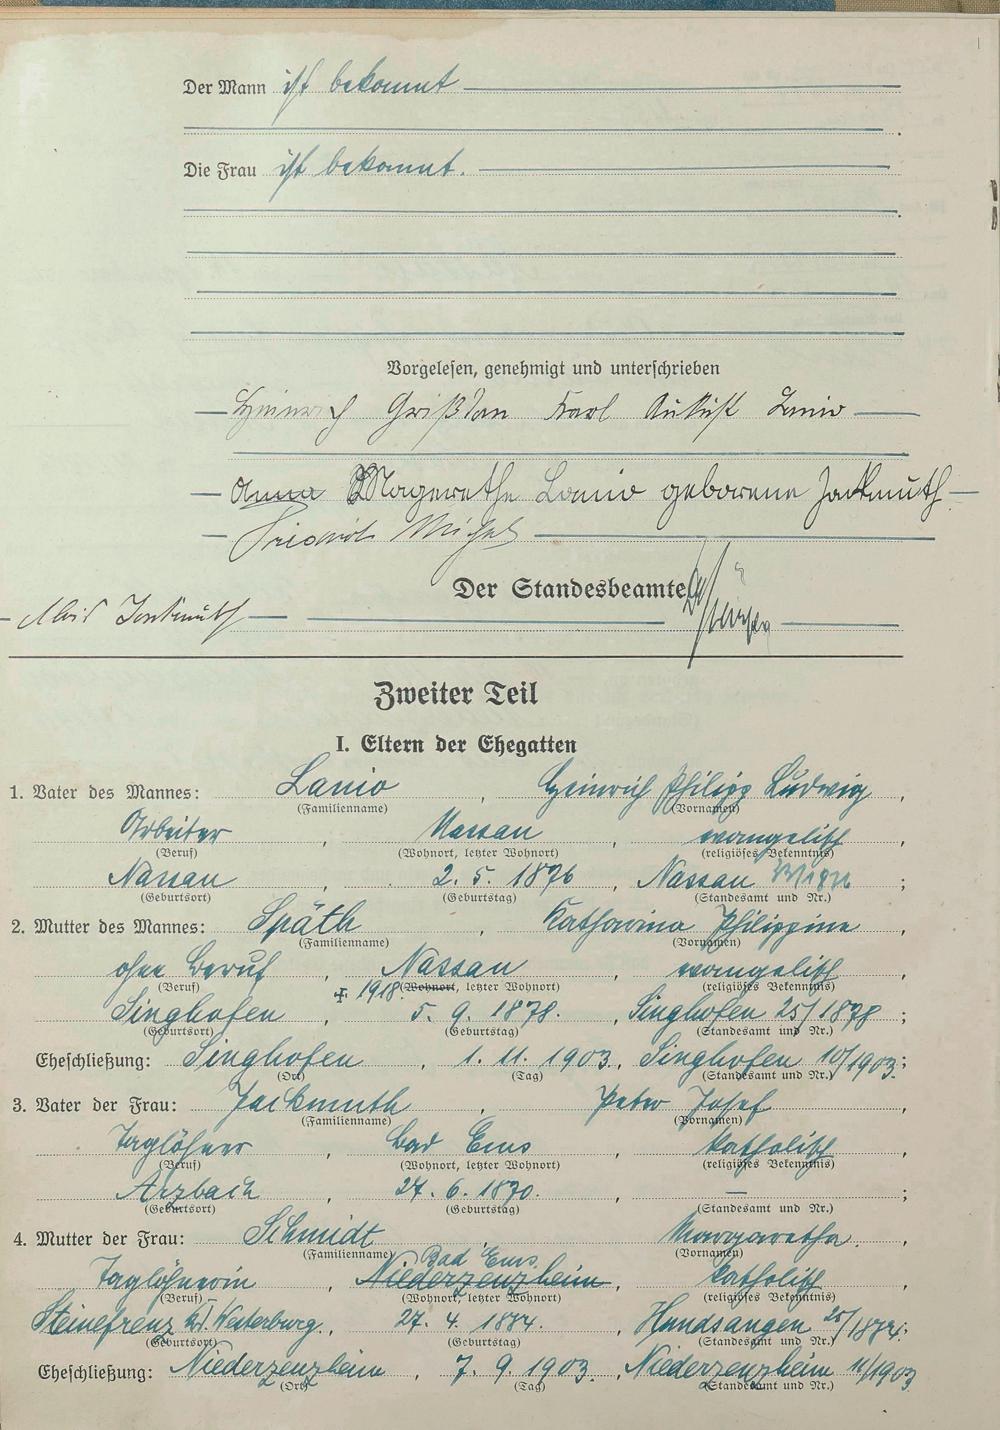 Der Mann ist bekannt
Die Frau ist bekannt.
Vorgelesen, genehmigt und unterschrieben
Heinrich Karl August Lanio
Anna Magerethe Lanio geborene Jackmuth
Friedrich Michel
Der Standesbeamte
Jackmuth
Zweiter Teil
I. Eltern der Ehegatten
1. Vater des Mannes: Lanio, Heinrich Philipp Ludwig,
(Familienname) (Vornamen)
Arbeiter, Nassau, evangelisch
(Beruf) (Wohnort, letzter Wohnort) (religiöses Bekenntnis)
Nassau, 2. 5. 1876, Nassau ;
(Geburtsort) (Geburtstag) (Standesamt und Nr.)
2. Mutter des Mannes: Späth, Katharina Philippine,
(Familienname) (Vornamen)
ohne Beruf, Nassau, evangelisch,
(Beruf) ☨ 1918. (Wohnort, letzter Wohnort) (religiöses Bekenntnis)
Singhofen, 5. 9. 1878., Singhofen 25/1878;
(Geburtsort) (Geburtstag) (Standesamt und Nr.)
Eheschließung: Singhofen, 1. 11. 1903., Singhofen 10/1903;
(Ort) (Tag) (Standesamt und Nr.)
3. Vater der Frau: Jackmuth, Peter Josef,
(Familienname) (Vornamen)
Taglöhner, Bad Ems, katholisch
(Beruf) (Wohnort, letzter Wohnort) (religiöses Bekenntnis)
Arzbach, 27. 6. 1870., — ;
(Geburtsort) (Geburtstag) (Standesamt und Nr.)
4. Mutter der Frau: Schmidt, Margaretha,
(Familienname) Bad Ems. (Vornamen)
Taglöhnerin, Niederzeuzheim, katholisch,
(Beruf) (Wohnort, letzter Wohnort) (religiöses Bekenntnis)
Steinefrenz Kr. Westerburg., 27. 4. 1884., Hundsangen 25/1884;
(Geburtsort) (Geburtstag) (Standesamt und Nr.)
Eheschließung: Niederzeuzheim, 7. 9. 1903., Niederzeuzheim 11/1903
(Ort) (Tag) (Standesamt und Nr.)